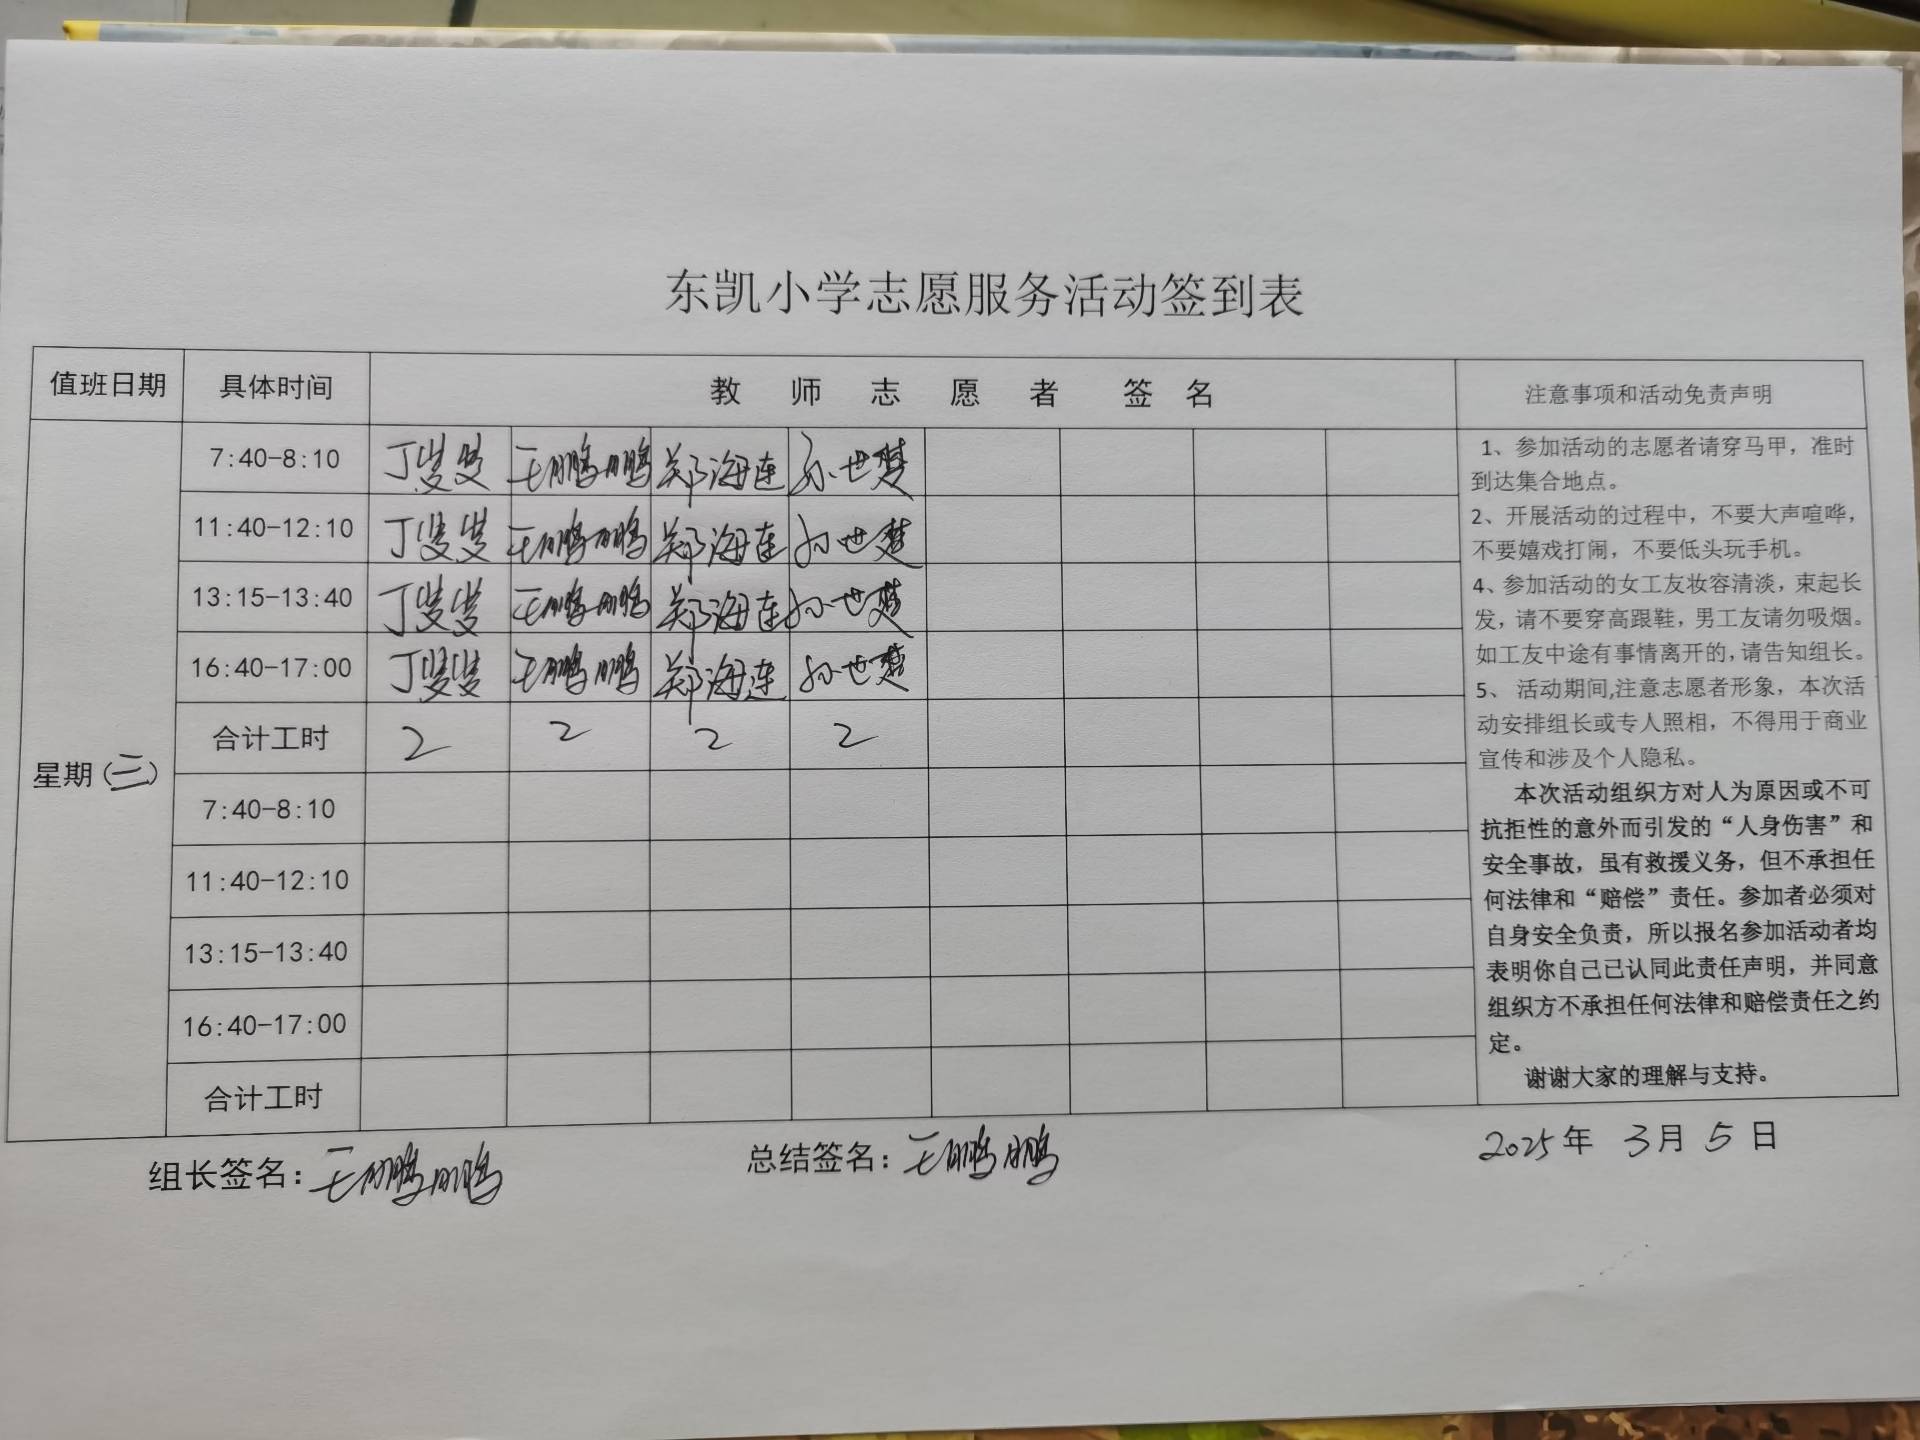 东凯小学志愿服务活动签到表
值班日期 具体时间 教师志愿者 签名 注意事项和活动免责声明
星期(三)
7:40-8:10 丁 王鹏鹏 郑海连 孙世楚
11:40-12:10 丁 王鹏鹏 郑海连 孙世楚
13:15-13:40 丁 王鹏鹏 郑海连 孙世楚
16:40-17:00 丁 王鹏鹏 郑海连 孙世楚
合计工时 2 2 2 2
7:40-8:10
11:40-12:10
13:15-13:40
16:40-17:00
合计工时
1、参加活动的志愿者请穿马甲，准时
到达集合地点。
2、开展活动的过程中，不要大声喧哗，
不要嬉戏打闹，不要低头玩手机。
4、参加活动的女工友妆容清淡，束起长
发，请不要穿高跟鞋，男工友请勿吸烟。
如工友中途有事情离开的，请告知组长。
5、 活动期间,注意志愿者形象，本次活
动安排组长或专人照相，不得用于商业
宣传和涉及个人隐私。
本次活动组织方对人为原因或不可
抗拒性的意外而引发的“人身伤害”和
安全事故，虽有救援义务，但不承担任
何法律和“赔偿”责任。参加者必须对
自身安全负责，所以报名参加活动者均
表明你自己已认同此责任声明，并同意
组织方不承担任何法律和赔偿责任之约
定。
谢谢大家的理解与支持。
组长签名：王鹏鹏 总结签名：王鹏鹏 2025年 3月 5日